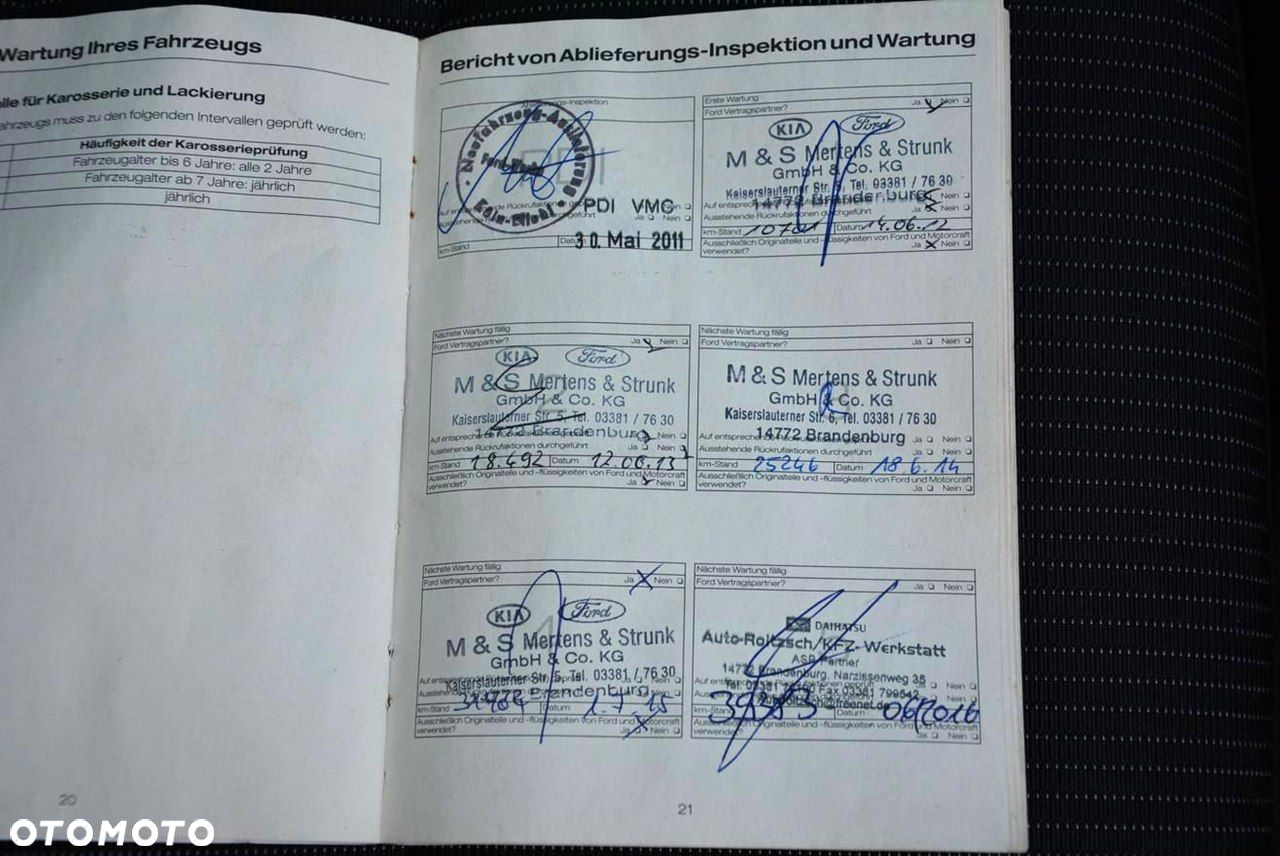 Wartung Ihres Fahrzeugs
für Karosserie und Lackierung
muss zu den folgenden Intervallen geprüft werden:
Häufigkeit der Karosserieprüfung
Fahrzeugalter bis 6 Jahre: alle 2 Jahre
Fahrzeugalter ab 7 Jahre: jährlich
jährlich
20
Bericht von Ablieferungs-Inspektion und Wartung
Neufahrzeug-Auslieferung
PDI VMC
Ja Nein
km-Stand
30. Mai 2011
Erste Wartung
Ford Vertragspartner? Ja Nein
KIA Ford
M & S Mertens & Strunk
GmbH & Co. KG
Kaiserslauterner Str. 5, Tel. 03381 / 76 30
14772 Brandenburg
Ausstehende Rückrufaktionen durchgeführt Ja Nein
km-Stand Datum 14.06.12
Ausschließlich Originalteile und -flüssigkeiten von Ford und Motorcraft
verwendet? Ja Nein
Nächste Wartung fällig
Ford Vertragspartner? Ja Nein
KIA Ford
M & S Mertens & Strunk
GmbH & Co. KG
Kaiserslauterner Str. 5, Tel. 03381 / 76 30
14772 Brandenburg Nein
Ausstehende Rückrufaktionen durchgeführt Ja Nein
km-Stand 18.492 Datum 12.06.13
Ausschließlich Originalteile und -flüssigkeiten von Ford und Motorcraft
verwendet? Ja Nein
Nächste Wartung fällig
Ford Vertragspartner? Ja Nein
M & S Mertens & Strunk
GmbH & Co. KG
Kaiserslauterner Str. 5, Tel. 03381 / 76 30
14772 Brandenburg Ja Nein
Ausstehende Rückrufaktionen durchgeführt Ja Nein
km-Stand 25246 Datum 18.6.14
Ausschließlich Originalteile und -flüssigkeiten von Ford und Motorcraft
verwendet? Ja Nein
Nächste Wartung fällig
Ford Vertragspartner? Ja Nein
KIA Ford
M & S Mertens & Strunk
GmbH & Co. KG
Kaiserslauterner Str. 5, Tel. 03381 / 76 30
14772 Brandenburg Nein
km-Stand Datum 1.7.15
Ausschließlich Originalteile und -flüssigkeiten von Ford und Motorcraft
verwendet? Ja Nein
Nächste Wartung fällig
Ford Vertragspartner? Ja Nein
DAIHATSU
Auto-Roitzsch/KFZ-Werkstatt
ASP Partner
14772 Brandenburg, Narzissenweg 35
Ja Nein
km-Stand 39383 Datum 06/2016
Ausschließlich Originalteile und -flüssigkeiten von Ford und Motorcraft
verwendet? Ja Nein
21
OTOMOTO